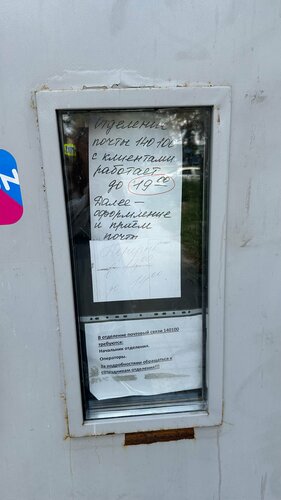 отделение
почты 140100
с клиентами
работает
до 19 00
Далее —
оформление
и приём
почты
В отделение почтовый связи 140100
требуются:
Начальник отделения.
Операторы.
За подробностями обращаться к
сотрудникам отделения!!!